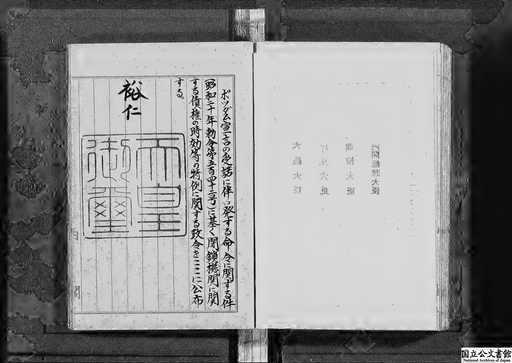 ポツダム宣言の受諾に伴い発する命令に関する件
(昭和二十年勅令第五百四十二号)に基く閉鎖機関に関
する債権の時効等の特例に関する政令をここに公布
する。
裕仁
天皇
御璽
国立公文書館
National Archives of Japan